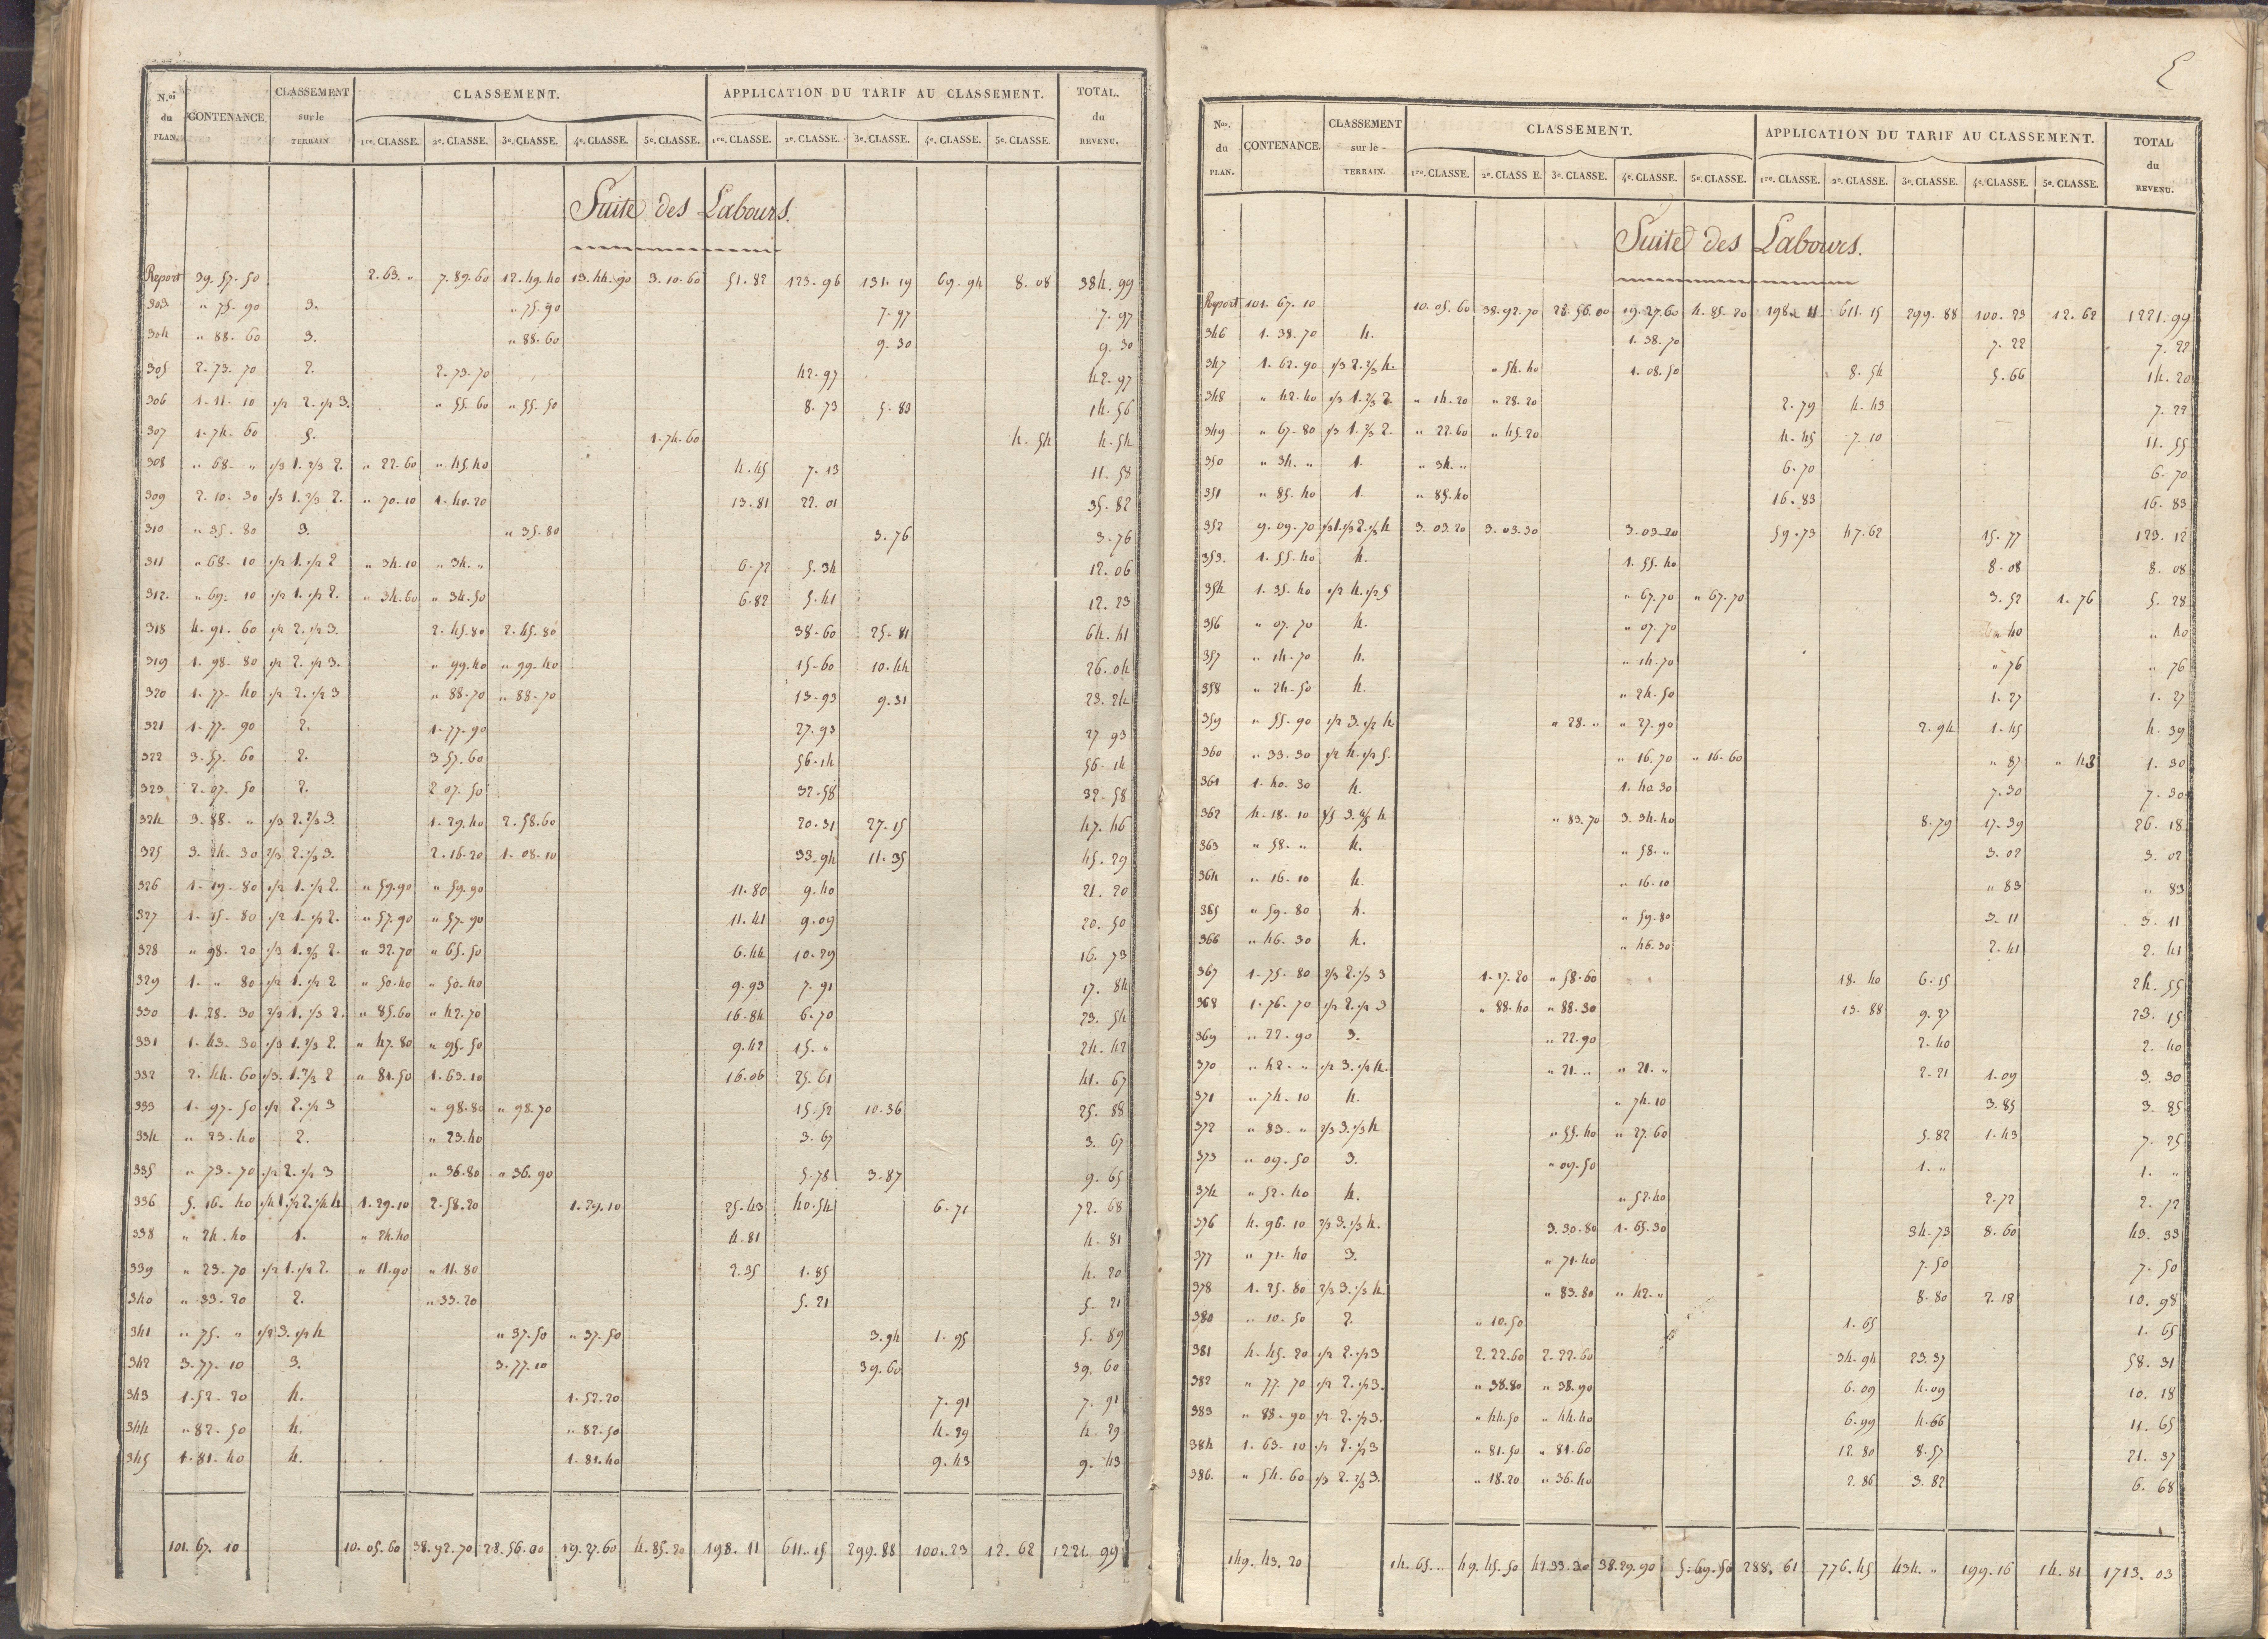 N.os du PLAN. CONTENANCE. CLASSEMENT sur le TERRAIN CLASSEMENT. APPLICATION DU TARIF AU CLASSEMENT. TOTAL. du REVENU.
1re. CLASSE. 2e. CLASSE. 3e. CLASSE. 4e. CLASSE. 5e. CLASSE. 1re. CLASSE. 2e. CLASSE. 3e. CLASSE. 4e. CLASSE. 5e. CLASSE.
Suite des Labours.
Report 39. 57. 50 2. 63. " 7. 89. 60 12. 49. 40 13. 44. 90 3. 10. 60 51. 82 123. 96 131. 19 69. 94 8. 08 384. 99
303 " 75. 90 3. " 75. 90 7. 97 7. 97
304 " 88. 60 3. " 88. 60 9. 30 9. 30
305 2. 73. 70 2. 2. 73. 70 42. 97 42. 97
306 1. 11. 10 1/2 2. 1/2 3. " 55. 60 " 55. 50 8. 73 5. 83 14. 56
307 1. 74. 60 5. 1. 74. 60 4. 54 4. 54
308 " 68. " 1/3 1. 2/3 2. " 22. 60 " 45. 40 4. 45 7. 13 11. 58
309 2. 10. 30 1/3 1. 2/3 2. " 70. 10 1. 40. 20 13. 81 22. 01 35. 82
310 " 35. 80 3. " 35. 80 3. 76 3. 76
311 " 68. 10 1/2 1. 1/2 2 " 34. 10 " 34. " 6. 72 5. 34 12. 06
312. " 69. 10 1/2 1. 1/2 2. " 34. 60 " 34. 50 6. 82 5. 41 12. 23
318 4. 91. 60 1/2 2. 1/2 3. 2. 45. 80 2. 45. 80 38. 60 25. 81 64. 41
319 1. 98. 80 1/2 2. 1/2 3. " 99. 40 " 99. 40 15. 60 10. 44 26. 04
320 1. 77. 40 1/2 2. 1/2 3 " 88. 70 " 88. 70 13. 93 9. 31 23. 24
321 1. 77. 90 2. 1. 77. 90 27. 93 27 93
322 3. 57. 60 2. 3 57. 60 56. 14 56. 14
323 2. 07. 50 2. 2 07. 50 32. 58 32. 58
324 3. 88. " 1/3 2. 2/3 3. 1. 29. 40 2. 58. 60 20. 31 27. 15 47. 46
325 3. 24. 30 2/3 2. 1/3 3. 2. 16. 20 1. 08. 10 33. 94 11. 35 45. 29
326 1. 19. 80 1/2 1. 1/2 2. " 59. 90 " 59. 90 11. 80 9. 40 21. 20
327 1. 15. 80 1/2 1. 1/2 2. " 57. 90 " 57. 90 11. 41 9. 09 20. 50
328 " 98. 20 1/3 1. 2/3 2. " 32. 70 " 65. 50 6. 44 10. 29 16. 73
329 1. " 80 1/2 1. 1/2 2 " 50. 40 " 50. 40 9. 93 7. 91 17. 84
330 1. 28. 30 2/3 1. 1/3 2. " 85. 60 " 42. 70 16. 84 6. 70 23. 54
331 1. 43. 30 1/3 1. 2/3 2. " 47. 80 " 95. 50 9. 42 15. " 24. 42
332 2. 44. 60 1/3. 1. 2/3 2 " 81. 50 1. 63. 10 16. 06 25. 61 41. 67
333 1. 97. 50 1/2 2. 1/2 3 " 98. 80 " 98. 70 15. 52 10. 36 25. 88
334 " 23. 40 2. " 23. 40 3. 67 3. 67
335 " 73. 70 1/2 2. 1/2 3 " 36. 80 " 36. 90 5. 78 3. 87 9. 65
336 5. 16. 40 1/4 1. 1/2 2. 1/4 4 1. 29. 10 2. 58. 20 1. 29. 10 25. 43 40. 54 6. 71 72. 68
338 " 24. 40 1. " 24. 40 4. 81 4. 81
339 " 23. 70 1/2 1. 1/2 2. " 11. 90 " 11. 80 2. 35 1. 85 4. 20
340 " 33. 20 2. " 33. 20 5. 21 5. 21
341 " 75. " 1/2 3. 1/2 4 " 37. 50 " 37. 50 3. 94 1. 95 5. 89
342 3. 77. 10 3. 3. 77. 10 39. 60 39. 60
343 1. 52. 20 4. 1. 52. 20 7. 91 7. 91
344 " 82. 50 4. " 82. 50 4. 29 4. 29
345 1. 81. 40 4. 1. 81. 40 9. 43 9. 43
101. 67. 10 10. 05. 60 38. 92. 70 28. 56. 00 19. 27. 60 4. 85. 20 198. 11 611. 15 299. 88 100. 23 12. 62 1221. 99
N.os du PLAN. CONTENANCE. CLASSEMENT sur le TERRAIN. CLASSEMENT. APPLICATION DU TARIF AU CLASSEMENT. TOTAL du REVENU.
1re. CLASSE. 2e. CLASS E. 3e. CLASSE. 4e. CLASSE. 5e. CLASSE. 1re. CLASSE. 2e. CLASSE. 3e. CLASSE. 4e. CLASSE. 5e. CLASSE.
Suite des Labours.
Report 101. 67. 10 10. 05. 60 38. 92. 70 28. 56. 00 19. 27. 60 4. 85. 20 198. 11 611. 15 299. 88 100. 23 12. 62 1221. 99
346 1. 38. 70 4. 1. 38. 70 7. 22 7. 22
347 1. 62. 90 1/3 2. 2/3 4. " 54. 40 1. 08. 50 8. 54 5. 66 14. 20
348 " 42. 40 1/3 1. 2/3 2. " 14. 20 " 28. 20 2. 79 4. 43 7. 22
349 " 67. 80 1/3 1. 2/3 2. " 22. 60 " 45. 20 4. 45 7. 10 11. 55
350 " 34. " 1. " 34. " 6. 70 6. 70
351 " 85. 40 1. " 85. 40 16. 83 16. 83
352 9. 09. 70 1/3 1. 1/3 2. 1/3 4 3. 03. 20 3. 03. 30 3. 03. 20 59. 73 47. 62 15. 77 123. 12
353. 1. 55. 40 4. 1. 55. 40 8. 08 8. 08
354 1. 35. 40 1/2 4. 1/2 5 " 67. 70 " 67. 70 3. 52 1. 76 5. 28
356 " 07. 70 4. " 07. 70 " 40 " 40
357 " 14. 70 4. " 14. 70 " 76 " 76
358 " 24. 50 4. " 24. 50 1. 27 1. 27
359 " 55. 90 1/2 3. 1/2 4 " 28. " " 27. 90 2. 94 1. 45 4. 39
360 " 33. 30 1/2 4. 1/2 5. " 16. 70 " 16. 60 " 87 " 43 1. 30
361 1. 40. 30 4. 1. 40. 30 7. 30 7. 30
362 4. 18. 10 1/5 3. 4/5 4 " 83. 70 3. 34. 40 8. 79 17. 39 26. 18
363 " 58. " 4. " 58. " 3. 02 3. 02
364 " 16. 10 4. " 16. 10 " 83 " 83
365 " 59. 80 4. " 59. 80 3. 11 3. 11
366 " 46. 30 4. " 46. 30 2. 41 2. 41
367 1. 75. 80 2/3 2. 1/3 3 1. 17. 20 " 58. 60 18. 40 6. 15 24. 55
368 1. 76. 70 1/2 2. 1/2 3 " 88. 40 " 88. 30 13. 88 9. 27 23. 15
369 " 22. 90 3. " 22. 90 2. 40 2. 40
370 " 42. " 1/2 3. 1/2 4. " 21. " " 21. " 2. 21 1. 09 3. 30
371 " 74. 10 4. " 74. 10 3. 85 3. 85
372 " 83. " 2/3 3. 1/3 4 " 55. 40 " 27. 60 5. 82 1. 43 7. 25
373 " 09. 50 3. " 09. 50 1. " 1. "
374 " 52. 40 4. " 52. 40 2. 72 2. 72
376 4. 96. 10 2/3 3. 1/3 4. 3. 30. 80 1. 65. 30 34. 73 8. 60 43. 33
377 " 71. 40 3. " 71. 40 7. 50 7. 50
378 1. 25. 80 2/3 3. 1/3 4. " 83. 80 " 42. " 8. 80 2. 18 10. 98
380 " 10. 50 2. " 10. 50 1. 65 1. 65
381 4. 45. 20 1/2 2. 1/2 3 2. 22. 60 2. 22. 60 34. 94 23. 37 58. 31
382 " 77. 70 1/2 2. 1/2 3. " 38. 80 " 38. 90 6. 09 4. 09 10. 18
383 " 88. 90 1/2 2. 1/2 3. " 44. 50 " 44. 40 6. 99 4. 66 11. 65
384 1. 63. 10 1/2 2. 1/2 3 " 81. 50 " 81. 60 12. 80 8. 57 21. 37
386. " 54. 60 1/3 2. 2/3 3. " 18. 20 " 36. 40 2. 86 3. 82 6. 68
149. 43. 20 14. 65. " 49. 45. 50 41. 33. 30 38. 29. 90 5. 69. 50 288. 61 776. 45 434. " 199. 16 14. 81 1713. 03